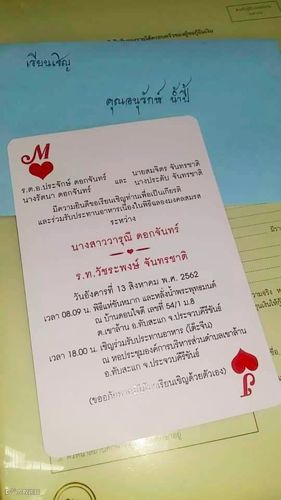 เรียนเชิญ
คุณอนุรักษ์ น้ำปี้
M
ร.ต.อ.ประจักษ์ ดอกจันทร์ นายสมจิตร จันทรชาติ
นางรัตนา ดอกจันทร์ และ นางประดับ จันทรชาติ
มีความยินดีขอเรียนเชิญท่านเพื่อเป็นเกียรติ
และร่วมรับประทานอาหารเนื่องในพิธีฉลองมงคลสมรส
ระหว่าง
นางสาววารุณี ดอกจันทร์
ร.ท.วัชระพงษ์ จันทรชาติ
วันอังคารที่ 13 สิงหาคม พ.ศ. 2562
เวลา 08.09 น. พิธีแห่ขันหมาก และหลั่งน้ำพระพุทธมนต์
ณ บ้านดอนใจดี เลขที่ 54/1 ม.8
ต.เขาล้าน อ.ทับสะแก จ.ประจวบคีรีขันธ์
เวลา 18.00 น. เชิญร่วมรับประทานอาหาร (โต๊ะจีน)
ณ หอประชุมองค์การบริหารส่วนตำบลเขาล้าน
อ.ทับสะแก จ.ประจวบคีรีขันธ์
(ขออภัยหากมิได้มาเรียนเชิญด้วยตัวเอง)
J